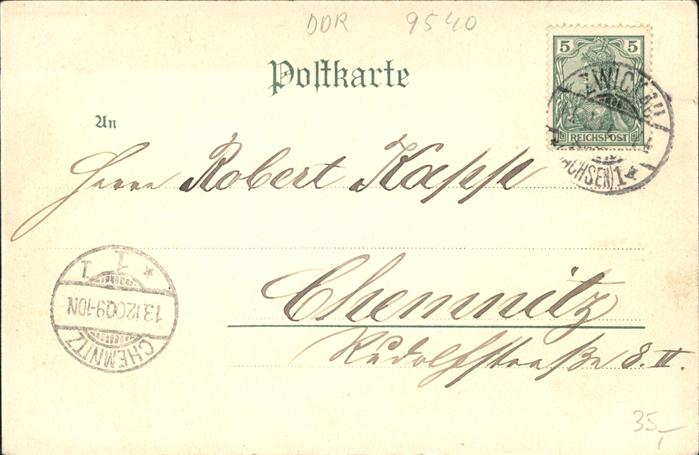 DDR 9540
Postkarte
5 5
REICHSPOST
ZWICKAU
(SACHSEN) 1 *
An
Herrn Robert Kapp
Chemnitz
Rudolfstraße 8. II.
* 1 1
13.12.00.9-10N
CHEMNITZ
35,-